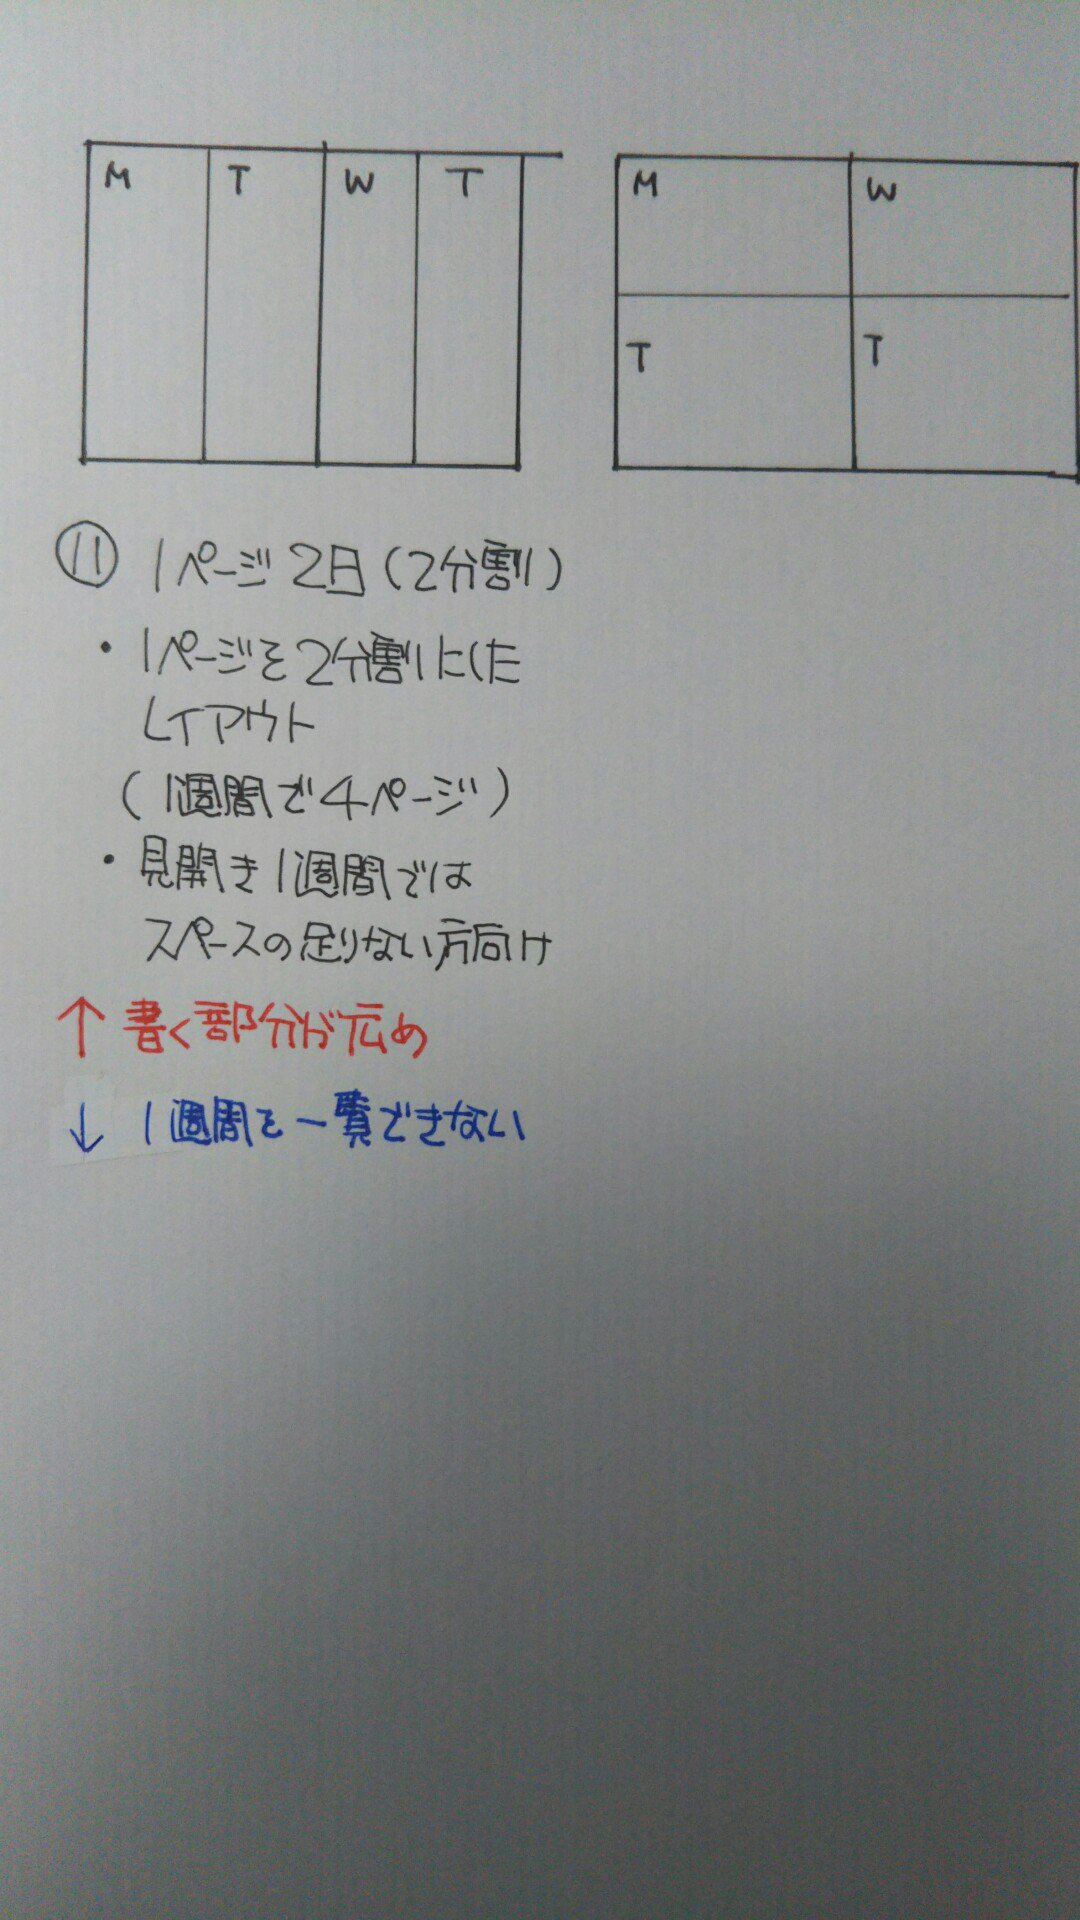 M T W T
M W
T T
⑪ 1ページ2日(2分割)
・1ページを2分割にした
レイアウト
(1週間で4ページ)
・見開き1週間では
スペースの足りない方向け
↑ 書く部分が広め
↓ 1週間を一覧できない